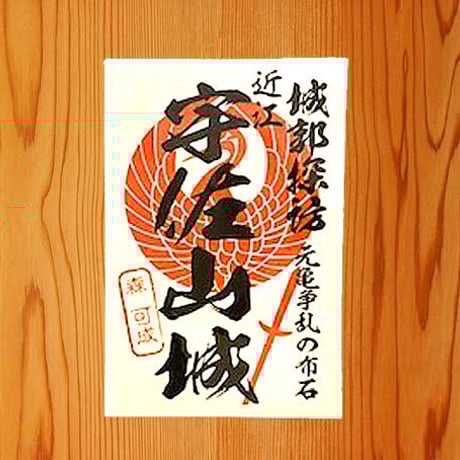 城郭探訪 元亀争乱の布石
近江
宇佐山城
森 可成